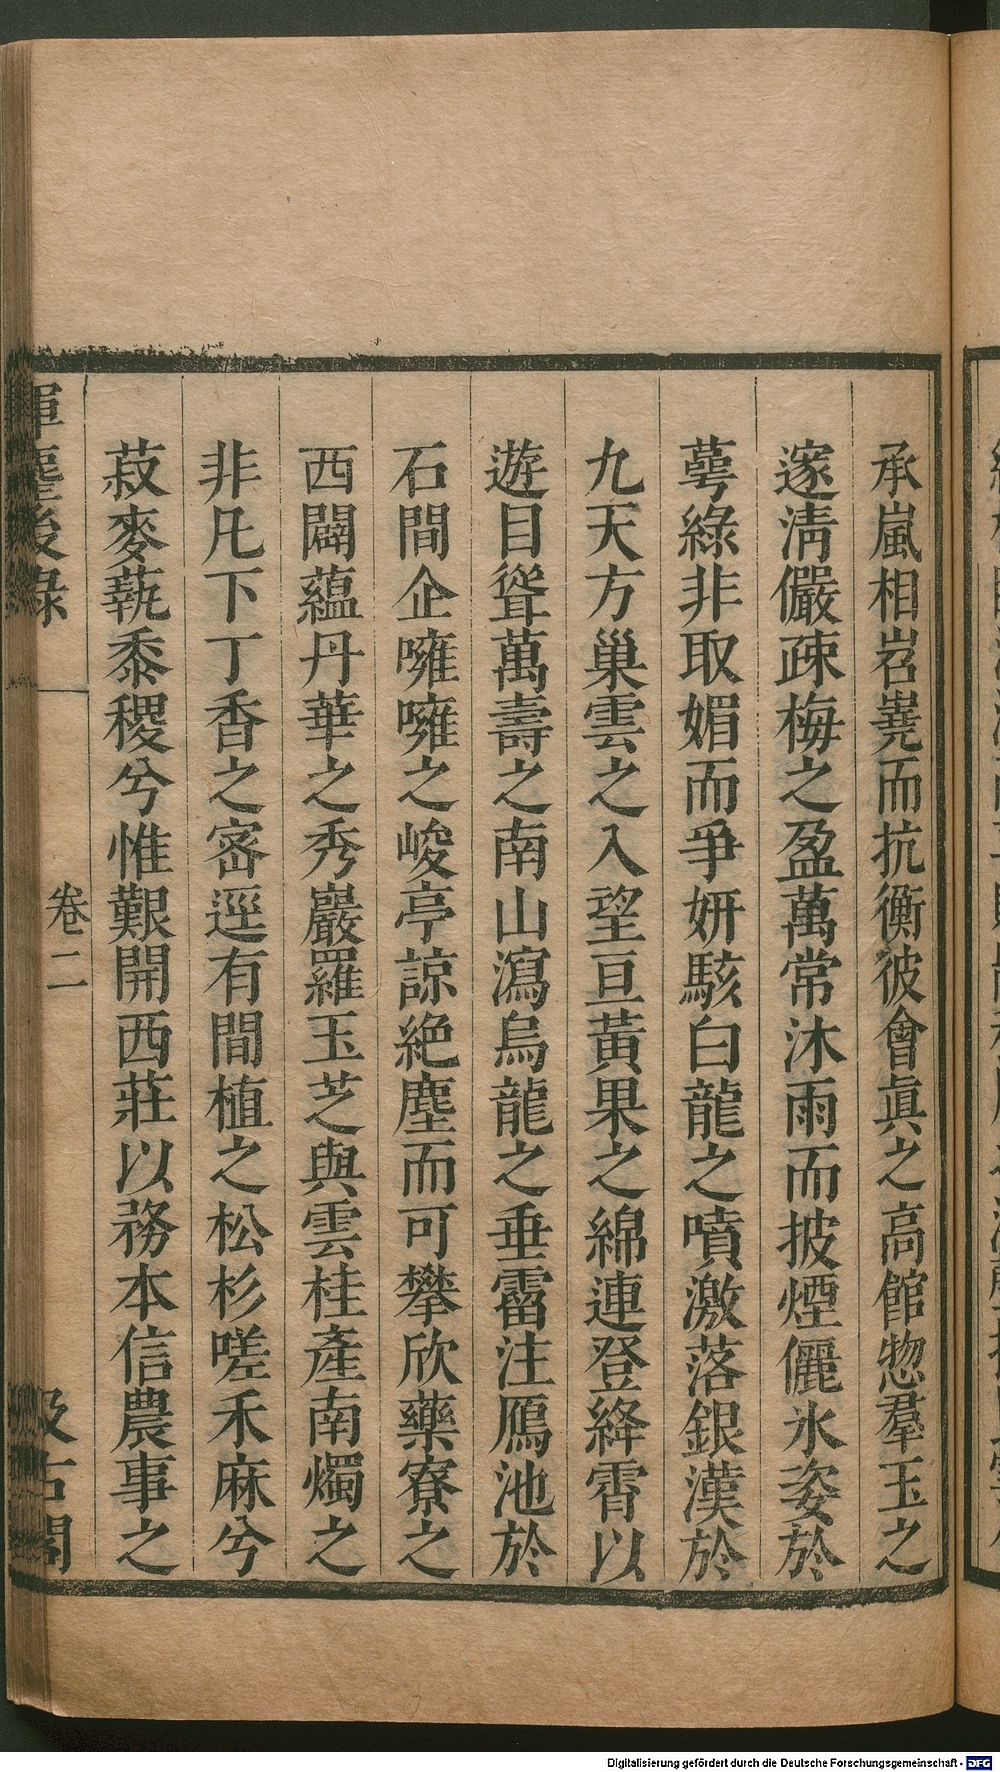 承嵐相岧嶤而抗衡彼會眞之高館惣羣玉之
邃淸儼疎梅之盈萬常沐雨而披煙儷氷姿於
萼綠非取媚而爭妍駭白龍之噴激落銀漢於
九天方巢雲之入望亘黃果之綿連登絳霄以
遊目聳萬壽之南山瀉烏龍之垂霤注鴈池於
石間企噰噰之峻亭諒絕塵而可攀欣藥寮之
西闢蘊丹華之秀巖羅玉芝與雲桂產南燭之
非凡下丁香之密逕有間植之松杉嗟禾麻兮
菽麥蓺黍稷兮惟艱開西莊以務本信農事之
揮麈後錄
卷二
汲古閣
Digitalisierung gefördert durch die Deutsche Forschungsgemeinschaft - DFG